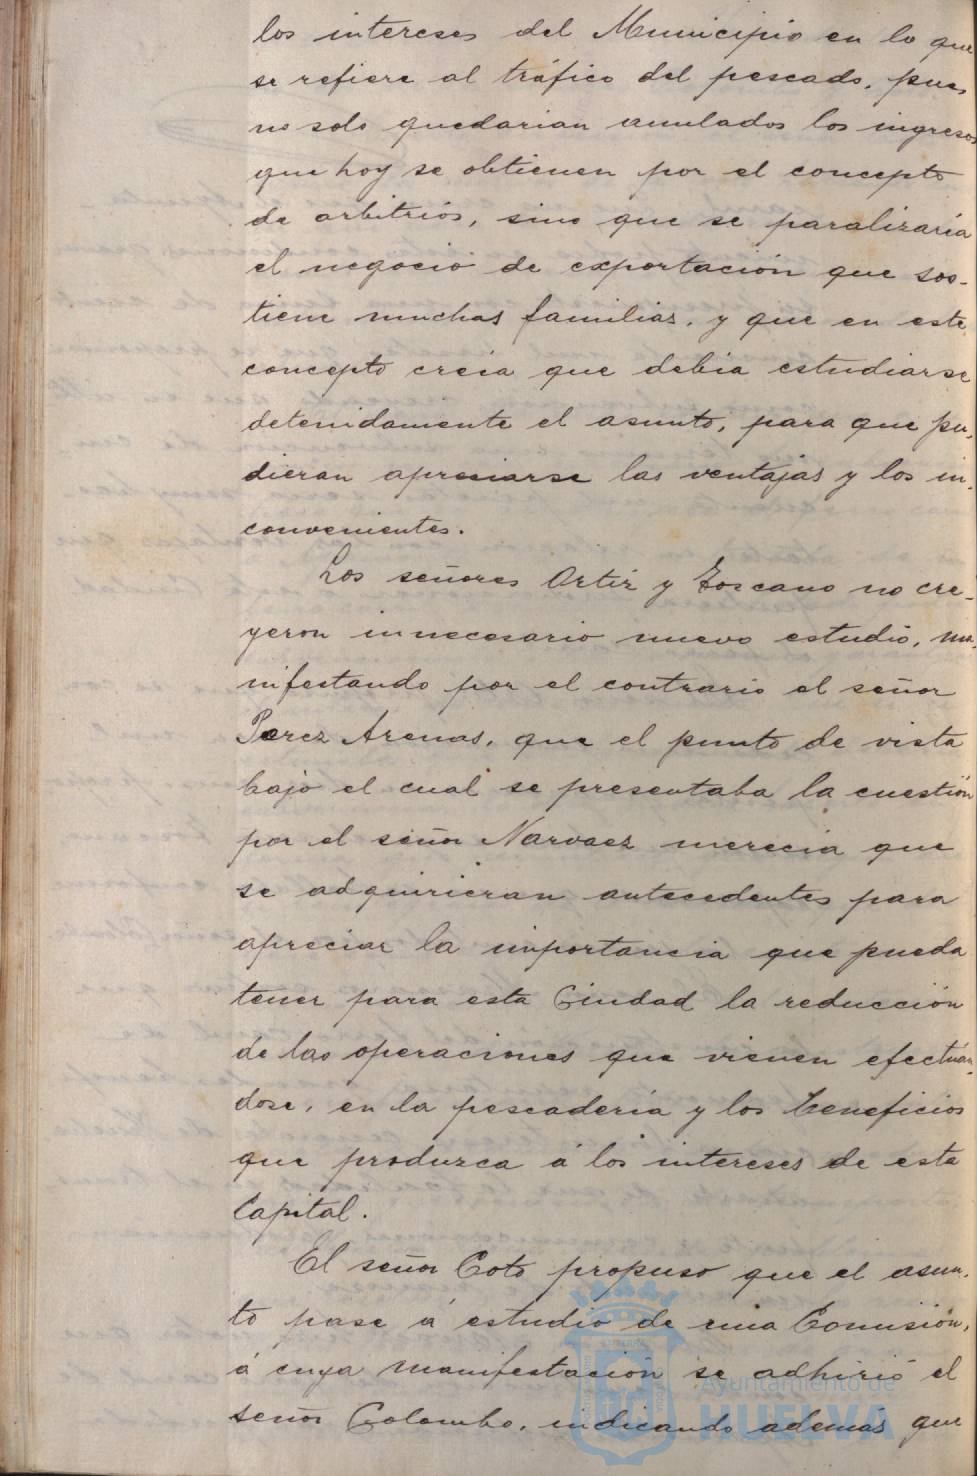 los intereses del Municipio en lo que
se refiere al tráfico del pescado, pues
no solo quedarian anulados los ingresos
que hoy se obtienen por el concepto
de arbitrios, sino que se paralizaría
el negocio de exportación que sos-
tiene muchas familias, y que en este
concepto creia que debia estudiarse
detenidamente el asunto, para que pu-
dieran apreciarse las ventajas y los in-
convenientes.
Los señores Ortiz y Toscano no cre-
yeron innecesario nuevo estudio, ma-
nifestando por el contrario el señor
Perez Arenas, que el punto de vista
bajo el cual se presentaba la cuestión
por el señor Narvaez merecia que
se adquirieran antecedentes para
apreciar la importancia que pueda
tener para esta Ciudad la reducción
de las operaciones que vienen efectuán-
dose, en la pescadería y los beneficios
que produzca á los intereses de esta
Capital.
El señor Coto propuso que el asun-
to pase á estudio de una Comisión,
á cuya manifestación se adhirió el
señor Colombo, indicando además que
Ayuntamiento de
HUELVA